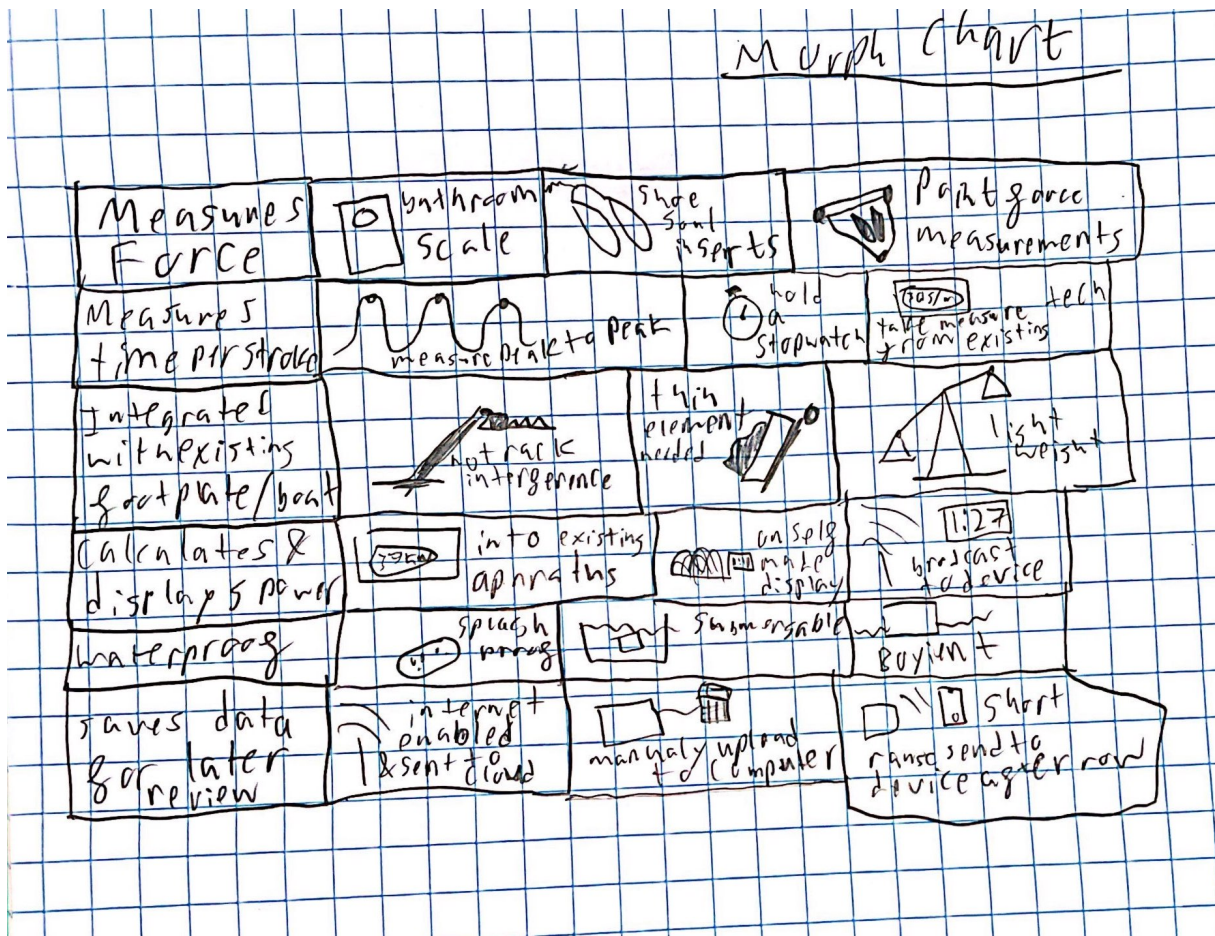 Morph Chart
Measures
Force
bathroom
scale
shoe
soul
inserts
Paint force
measurements
Measures
time per stroke
measure peak to peak
hold
a
stopwatch
tech
take measure
from existing
Integrated
with existing
footplate/boat
not rack
interference
thin
element
needed
light
weight
Calculates &
displays power
into existing
aparatus
on self
made
display
1:27
brodcast
to device
waterproof
splash
proof
submersable
Buyient
saves data
for later
review
internet
enabled
& sent to
cloud
manualy upload
to computer
short
range send to
device after row